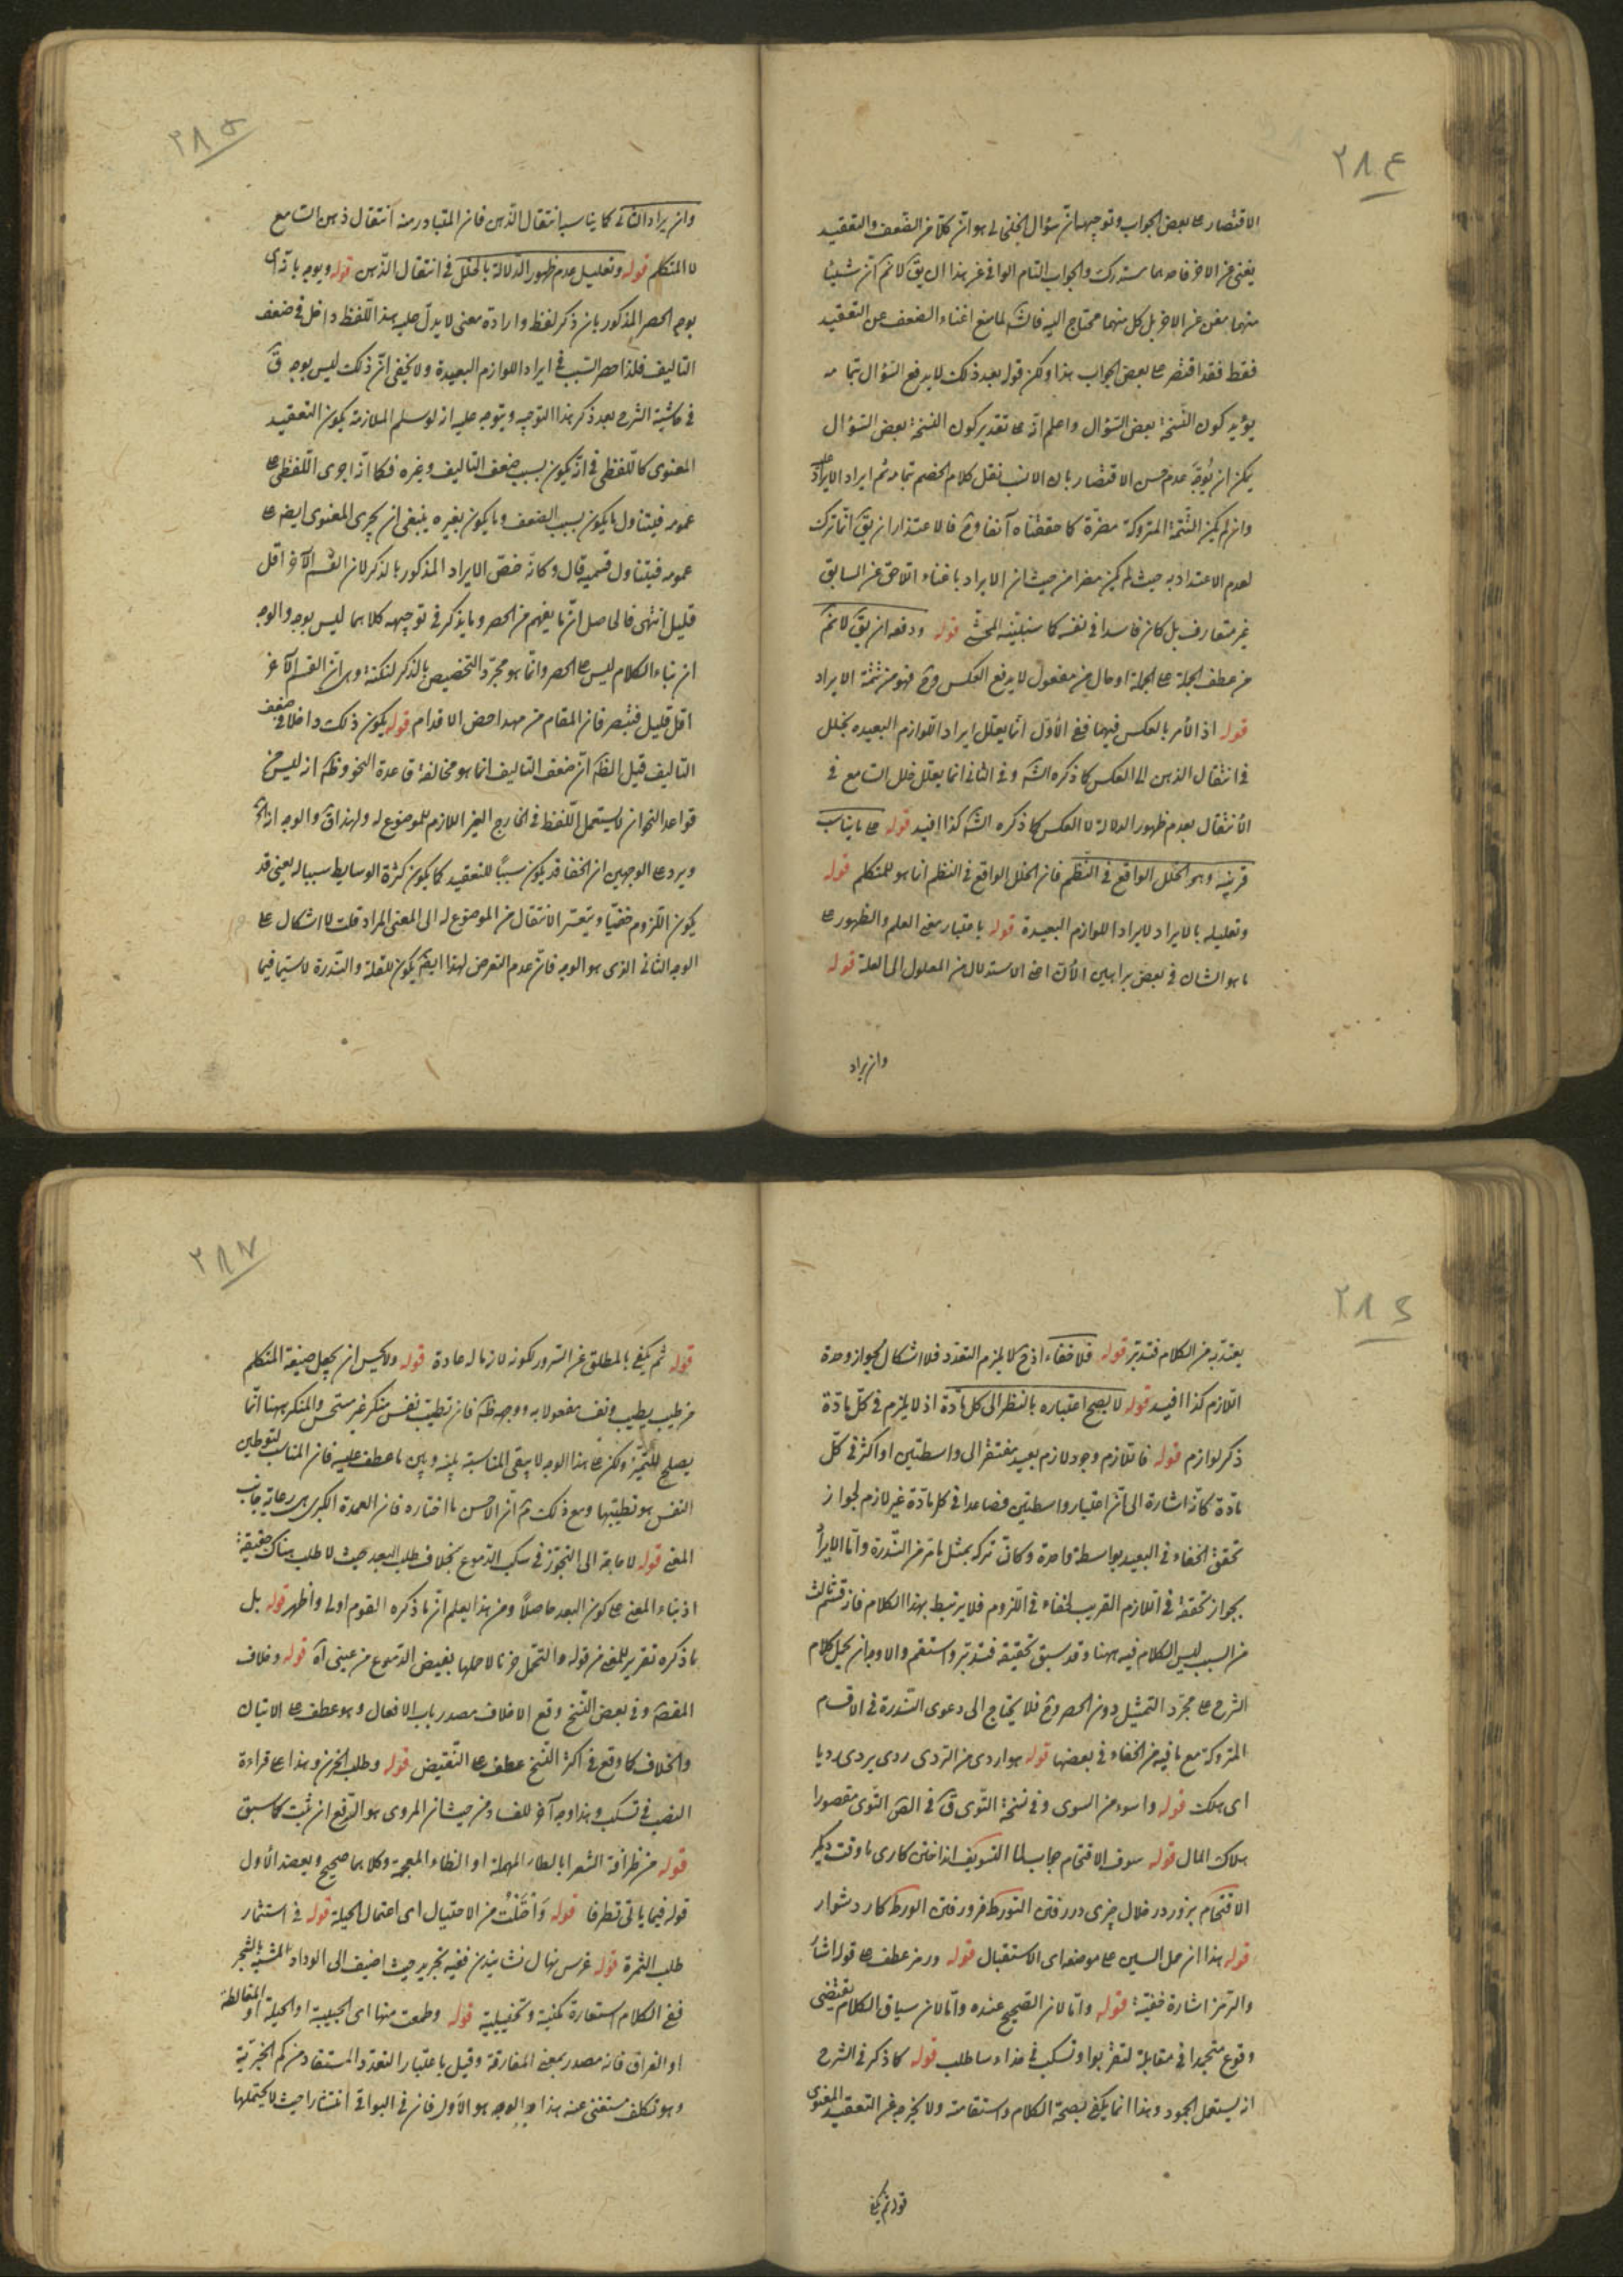 ٢٨٤
الاقتصار على بعض الجواب وتوجيهه ان سؤال الخلخالى هو ان كلا من الضعف والتعقيد
يغنى عن الاخر فاحدهما مستدرك والجواب التام الوافى عن هذا ان يق لا نم ان شيئا
منهما مغن عن الاخر بل كل منهما محتاج اليه فالشه لما منع اغناء الضعف عن التعقيد
فقط فقد اقتصر على بعض الجواب هذا ولكن قوله بعد ذلك لا يدفع السؤال بتمامه
يؤيد كون النسخة بعض السؤال واعلم انه على تقدير كون النسخة بعض السؤال
يمكن ان يوجه عدم حسن الاقتصار بان الانسب نقل كلام الخصم بتمامه ثم ايراد الايراد عليه
وان لم يكن التتمة المتروكة مضرة كما حققناه آنفا وح فالاعتذار ان يق انما ترك
لعدم الاعتداد به حيث لم يكن مضرا من حيث ان الايراد باغناء اللاحق عن السابق
غير متعارف بل كان فاسدا فى نفسه كما سنبينه المحشى قوله ودفعه ان يق لا نم
من عطف الجملة على الجملة او حال من مفعول لا يدفع العكس وح فهو من تتمة الايراد
قوله اذ الامر بالعكس فيهما ففى الاول انما يعلل ايراد اللوازم البعيدة بخلل
فى انتقال الذهن لا العكس كما ذكره الشه وفى الثانى انما يعلل خلل السامع فى
الانتقال بعدم ظهور الدلالة لا العكس كما ذكره الشه كذا افيد قوله على ما يناسب
قرينه وهو الخلل الواقع فى النظم فان الخلل الواقع فى النظم انما هو للمتكلم قوله
وتعليله بالايراد لايراد اللوازم البعيدة قوله باعتبار معنى العلم والظهور على
ما هو الشان فى بعض براهين الان اعنى الاستدلال من المعلول الى العلة قوله
وان يراد
٢٨٥
وان يراد الثانى كما يناسب انتقال الذهن فان المتبادر منه انتقال ذهن السامع
لا المتكلم قوله وتعليل عدم ظهور الدلالة بالخلل فى انتقال الذهن قوله ويوجه بانه اى
يوجه الحصر المذكور بان ذكر لفظ وارادة معنى لا يدل عليه هذا اللفظ داخل فى ضعف
التاليف فلذا حصر السبب فى ايراد اللوازم البعيدة ولا يخفى ان ذلك ليس بوجه ق
فى حاشية الشرح بعد ذكر هذا التوجيه ويتوجه عليه انه لو سلم الملازمة يكون التعقيد
المعنوى كاللفظى فى انه يكون بسبب ضعف التاليف وغيره فكما انه اجرى اللفظى على
عمومه فيتناول ما يكون بسبب الضعف وما يكون بغيره ينبغى ان يجرى المعنوى ايضا على
عمومه فيتناول قسميه قال وكانه خص الايراد المذكور بالذكر لان القسم الآخر اقل
قليل انتهى فالحاصل ان ما يفهم من الحصر وما يذكر فى توجيهه كلاهما ليس بوجه والوجه
ان بناء الكلام ليس على الحصر وانما هو مجرد التخصيص بالذكر لنكتة وهى ان القسم الآخر
اقل قليل فتبصر فان المقام من مداحض الاقدام قوله يكون ذلك داخلا فى ضعف
التاليف قيل الظه ان ضعف التاليف انما هو مخالفة قاعدة النحو وظه انه ليس من
قواعد النحو ان لا يستعمل اللفظ فى الخارج الغير اللازم للموضوع له ولهذا ق والوجه انه الخ
ويرد على الوجهين ان الخفا قد يكون سببا للتعقيد كما يكون كثرة الوسايط سببا له يعنى قد
يكون اللزوم خفيا ويتعسر الانتقال من الموضوع له الى المعنى المراد قلت لا اشكال على
الوجه الثانى الذى هو الوجه فان عدم التعرض لهذا ايضا يكون للقلة والندرة لا سيما فيما
٢٨٦
يعتد به من الكلام فتدبر قوله فلا خفاء اذ ح لا يلزم التعدد فلا اشكال لجواز وحدة
اللازم كذا افيد قوله لا يصح اعتباره بالنظر الى كل مادة اذ لا يلزم فى كل مادة
ذكر لوازم قوله فاللازم وجود لازم بعيد مفتقر الى واسطتين او اكثر فى كل
مادة كانه اشارة الى ان اعتبار واسطتين فصاعدا فى كل مادة غير لازم لجواز
تحقق الخفاء فى البعيد بواسطة واحدة وكان تركه بمثل ما مر من الندرة واما الايراد
بجواز تحققه فى اللازم القريب لخفاء فى اللزوم فلا يرتبط بهذا الكلام فانه قسم ثالث
من السبب ليس الكلام فيه ههنا وقد سبق تحقيقه فتدبر واستقم والاوجه ان يحمل كلام
الشرح على مجرد التمثيل دون الحصر وح فلا يحتاج الى دعوى الندرة فى الاقسام
المتروكة مع ما فيه من الخفاء فى بعضها قوله هو اردى من التردى ردى يردى رديا
اى هلك قوله واسوء من السوى وفى نسخة التوى ق فى الص التوى مقصورا
هلاك المال قوله سوف الاقتحام جاب لما التسويف انداختن كارى با وقت ديگر
الاقتحام بزور در خلال چيزى در رفتن التورط فرو رفتن الورط كار دشوار
قوله هذا ان حمل السين على موضعه اى الاستقبال قوله ورمز عطف على قوله اشار
والرمز اشارة خفية قوله واما لان الصحيح عنده واما لان سياق الكلام يقتضى
وقوع لتجمدا فى مقابلة لتقربوا وتسكب فى عداد ساطلب قوله كما ذكر فى الشرح
انه يستعمل الجمود وهذا انما يكفى لصحة الكلام واستقامته ولا يخرجه عن التعقيد المعنوى
قوله ثم يكنى
٢٨٧
قوله ثم يكنى بالمطلق عن السرور لكونه لازما له عادة قوله ولا يحسن ان يجعل صيغة المتكلم
من طيب يطيب ونفسا مفعولا به ووجهه ظه فان تطييب نفس منكر غير مستحسن والمنكر ههنا انما
يصلح للتميز ولكن على هذا الوجه لا يبقى المناسبة بينه وبين ما عطف عليه فان المناسب لتوطين
النفس هو تطييبها ومع ذلك ثم ان الاحسن ما اختاره فان العمدة الكبرى هى رعاية جانب
المعنى قوله لا حاجة الى التجوز فى سكب الدموع بخلاف طلب البعد حيث لا طلب هناك حقيقة
اذ بناء المعنى على كون البعد حاصلا ومن هذا يعلم ان ما ذكره القوم اولى واظهر قوله بل
ما ذكره تقرير للمعنى من قوله والتحمل حزنا لاجلها يفيض الدموع من عينى اه قوله وخلاف
المقص وفى بعض النسخ وقع الاخلاف مصدر باب الافعال وهو عطف على الاتيان
والخلاف كما وقع فى اكثر النسخ عطف على النقيض قوله وطلب الحزن وهذا على قراءة
النصب فى تسكب وهذا وجه آخر للفساد من حيث ان المروى هو الرفع ان ثبت كما سبق
قوله من ظرافة الشعر ابا لطاء المهملة او الظاء المعجمة وكلاهما صحيح ويعضد الاول
قوله فيما ياتى تطرفا قوله وَاحْتَلْتُ من الاحتيال اى اعتمال الحيلة قوله فى استثمار
طلب الثمرة قوله غرس نهال نشانيدن ففيه تجريد حيث اضيف الى الوداد المشبه بالشجر
ففى الكلام استعارة مكنية وتخييلية قوله وطمعت منها اى الحبيبة او الحيلة او المغالطة
او الفراق فانه مصدر بمعنى المفارقة وقيل باعتبار التعدد المستفاد من كم الخبرية
وهو تكلف مستغنى عنه هذا والوجه هو الاول فان فى البواقى انتشارا حيث لا يحتملها